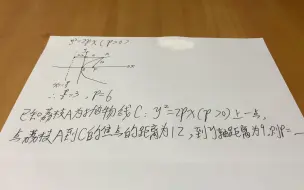 y²=2px(p>0)
∴ p/2=3, p=6
已知荔枝A为抛物线C: y²=2px(p>0)上一点,
点荔枝A到C的焦点的距离为12, 到y轴距离为9, 则p=